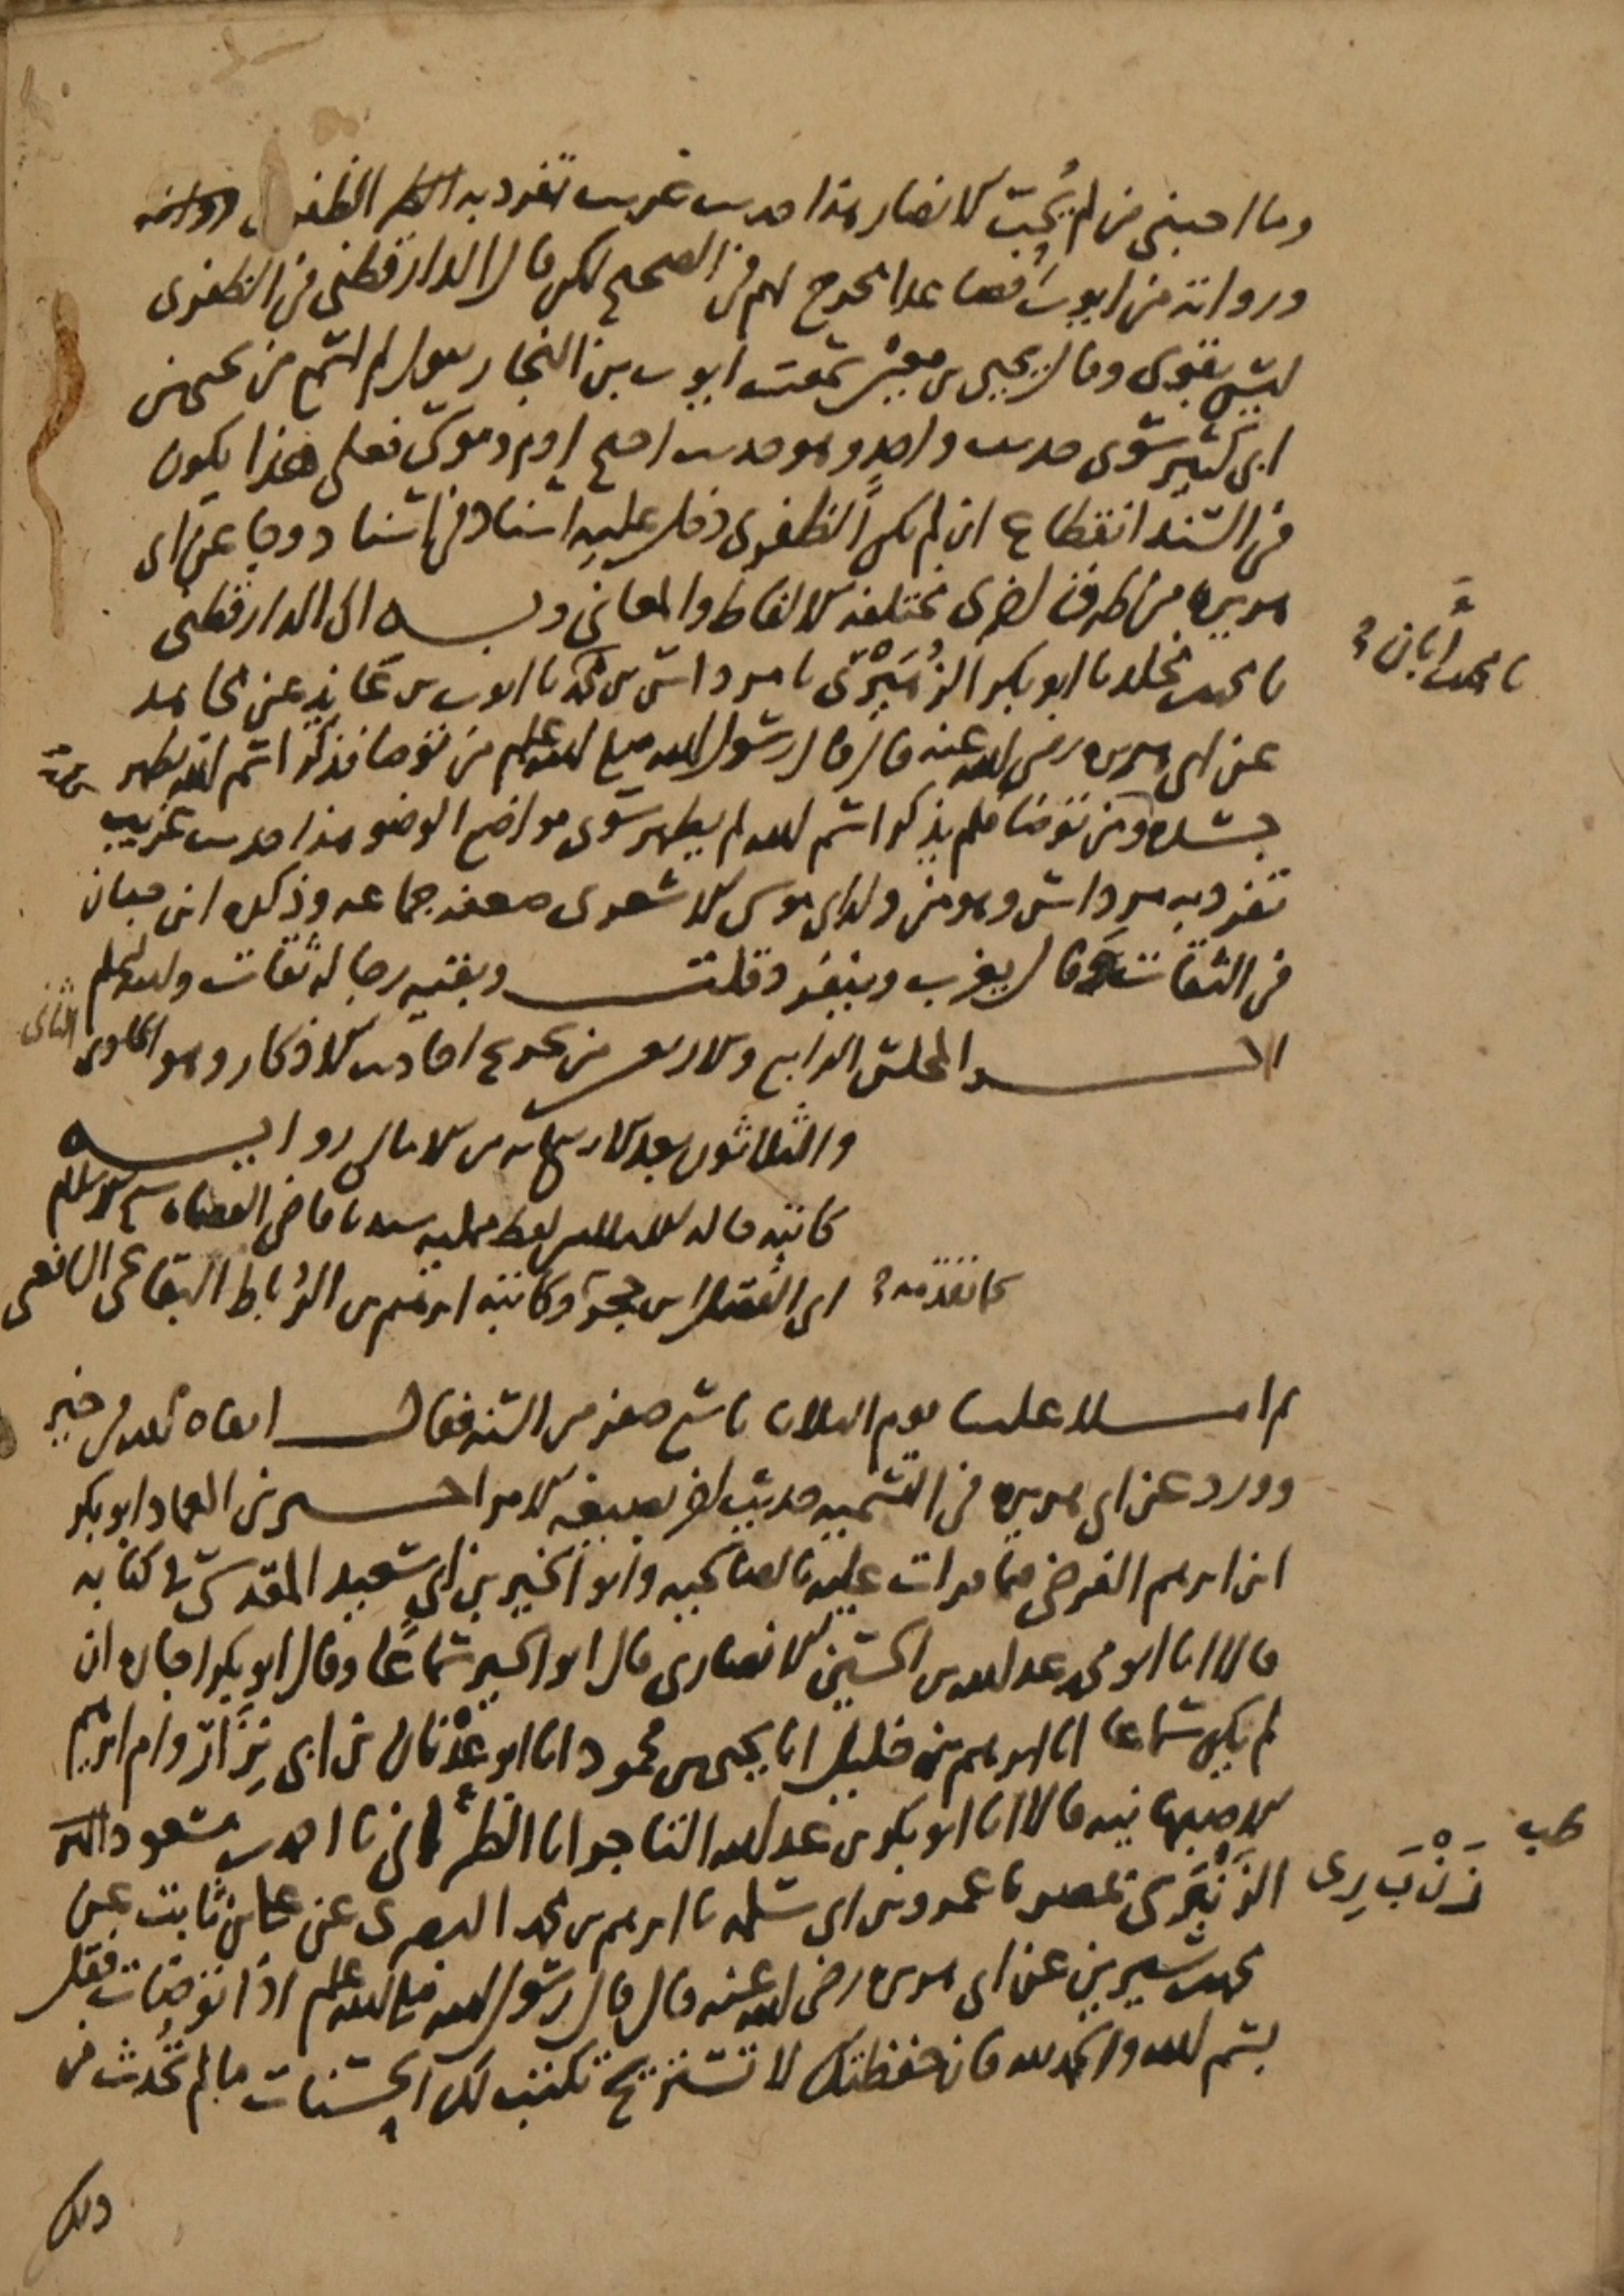 وما احبني من لم يحب الانصار هذا حديث غريب تفرد به الظفري
ورواته من ايوب فصاعدا مخرج لهم في الصحيح لكن قال الدارقطني في الظفري
ليس بقوي وقال يحيى بن معين سمعت ايوب بن النجار يقول لم اسمع من يحيى بن
ابي كثير سوى حديث واحد وهو حديث احتج ادم وموسى فعلى هذا يكون
في السند انقطاع ان لم يكن الظفري دخل عليه اسناد في اسناد وجا عن ابي
هريرة من طرق اخرى مختلفة الالفاظ والمعاني وبـه الى الدارقطني
نا محمد بن مخلد نا ابو بكر الزهيري نا مرداس بن محمد نا ايوب بن عائذ عن مجاهد
نا محمد بن ابان
عن ابي هريرة رضي الله عنه قال قال رسول الله صلى الله عليه وسلم من توضا فذكر اسم الله يطهر
جسده ومن توضا فلم يذكر اسم الله لم يطهر سوى مواضع الوضو هذا حديث غريب
تفرد به مرداس وهو من ولد ابي موسى الاشعري ضعفه جماعه وذكره ابن حبان
في الثقات وقال يغرب وينفرد قلت وبقيه رجاله ثقات والله اعلم
اخـر المجلس الرابع والاربعين من تخريج احاديث الاذكار وهو الحادي
والثلاثون بعد الاربعمائة من الامالي روايـه
كاتبه قاله لفظ ممليه سيدنا قاضي القضاة شيخ الاسلام
ابي الفضل ابن حجر وكاتبه ابرهيم بن الرباط البقاعي الشافعي
كما تقدمه
ثم املـا علينا يوم الثلاثا تاسع صفر من السنه فقال ابقاه الله في خير
وورد عن ابي هريرة في التسميه حديث اخر بصيغه الامر اخـبرني العماد ابو بكر
ابن ابرهيم الفرضي فيما قرات عليه بالصالحيه وابو الخير بن ابي سعيد المقدسي في كتابه
قالا انا ابو محمد عبد الله بن الحسين الانصاري قال ابو الخير سماعا وقال ابو بكر اجازه ان
لم يكن سماعا انا ابرهيم بن خليل انا يحيى بن محمود انا ابو عدنان بن ابي نزار وام ابرهيم
الاصبهانيه قالا انا ابو بكر بن عبد الله التاجر انا الطبراني نا احمد بن مسعود
الزنبري بمصر نا عمرو بن ابي سلمه نا ابرهيم بن محمد البصري عن علي بن ثابت عن
زَنْبَ رِى
محمد بن سيرين عن ابي هريرة رضي الله عنه قال قال رسول الله صلى الله عليه وسلم اذا توضات فقل
بسم الله والحمد لله فان حفظتك لا تستريح تكتب لك الحسنات ما لم تحدث من
ذلك